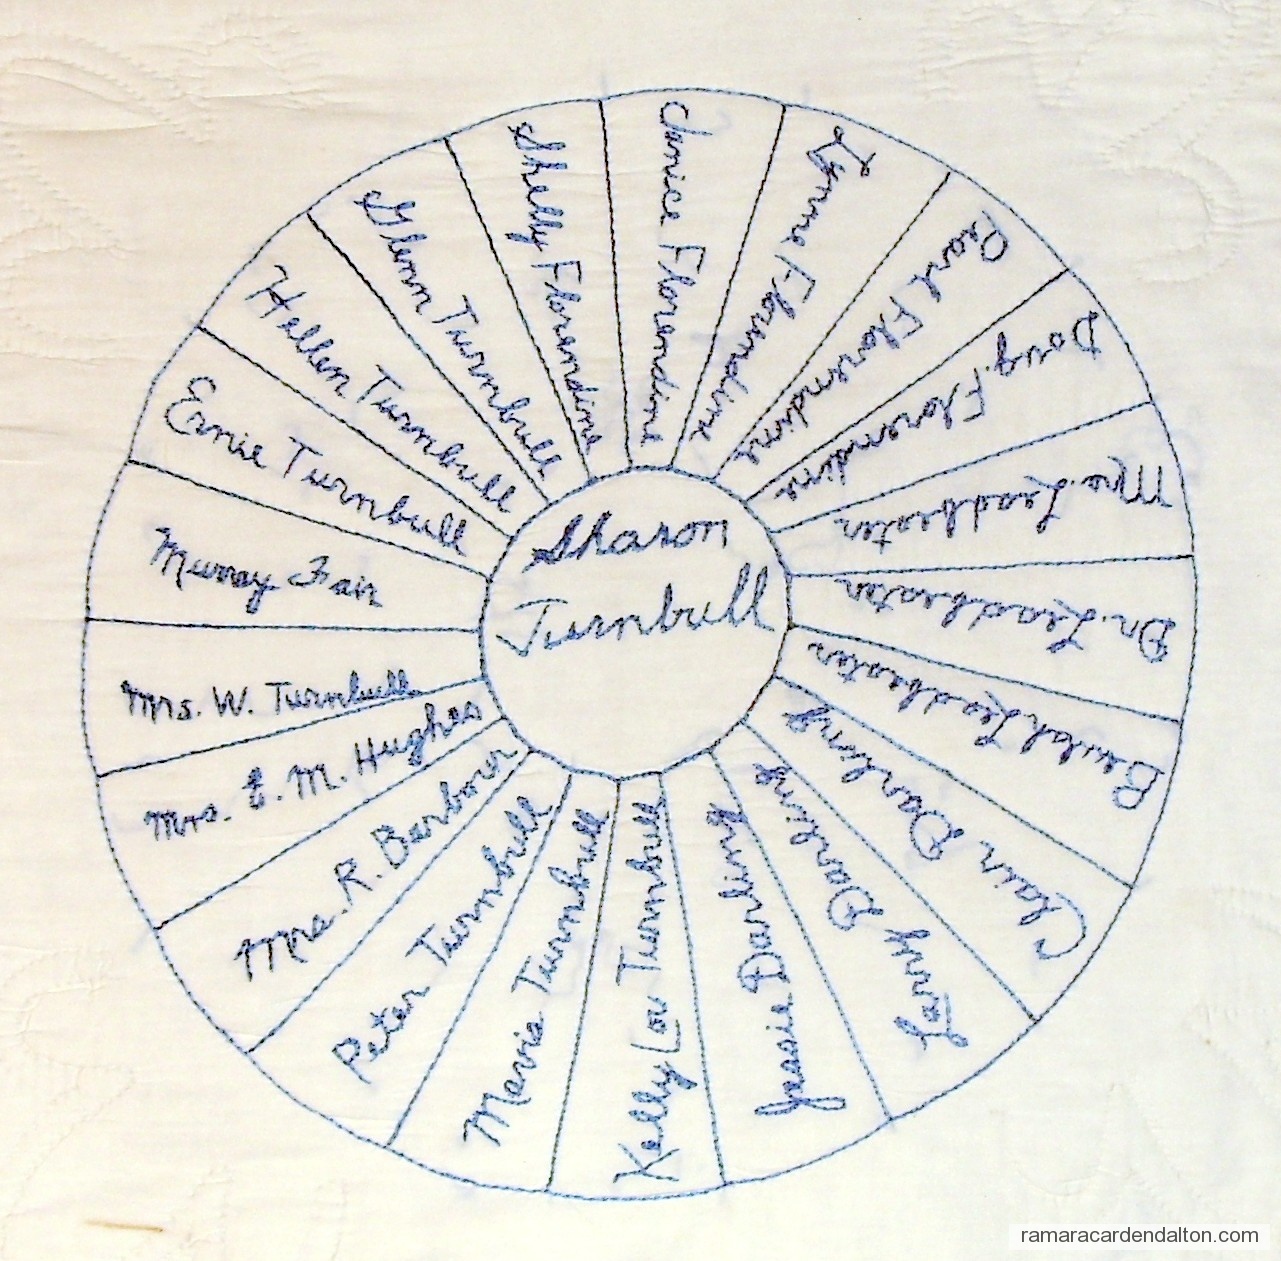 Sharon
Turnbull
Janice Florendine
Lynne Florendine
Pearl Florendine
Doug. Florendine
Mrs. Leadbeater
Dr. Leadbeater
Beulah Leadbeater
Clair Darling
Larry Darling
Jessie Darling
Kelly Lou Turnbull
Mavis Turnbull
Peter Turnbull
Mrs. R. Barbour
Mrs. E. M. Hughes
Mrs. W. Turnbull
Murray Fair
Ernie Turnbull
Hellen Turnbull
Glenn Turnbull
Shelly Florendine
ramaracardendalton.com